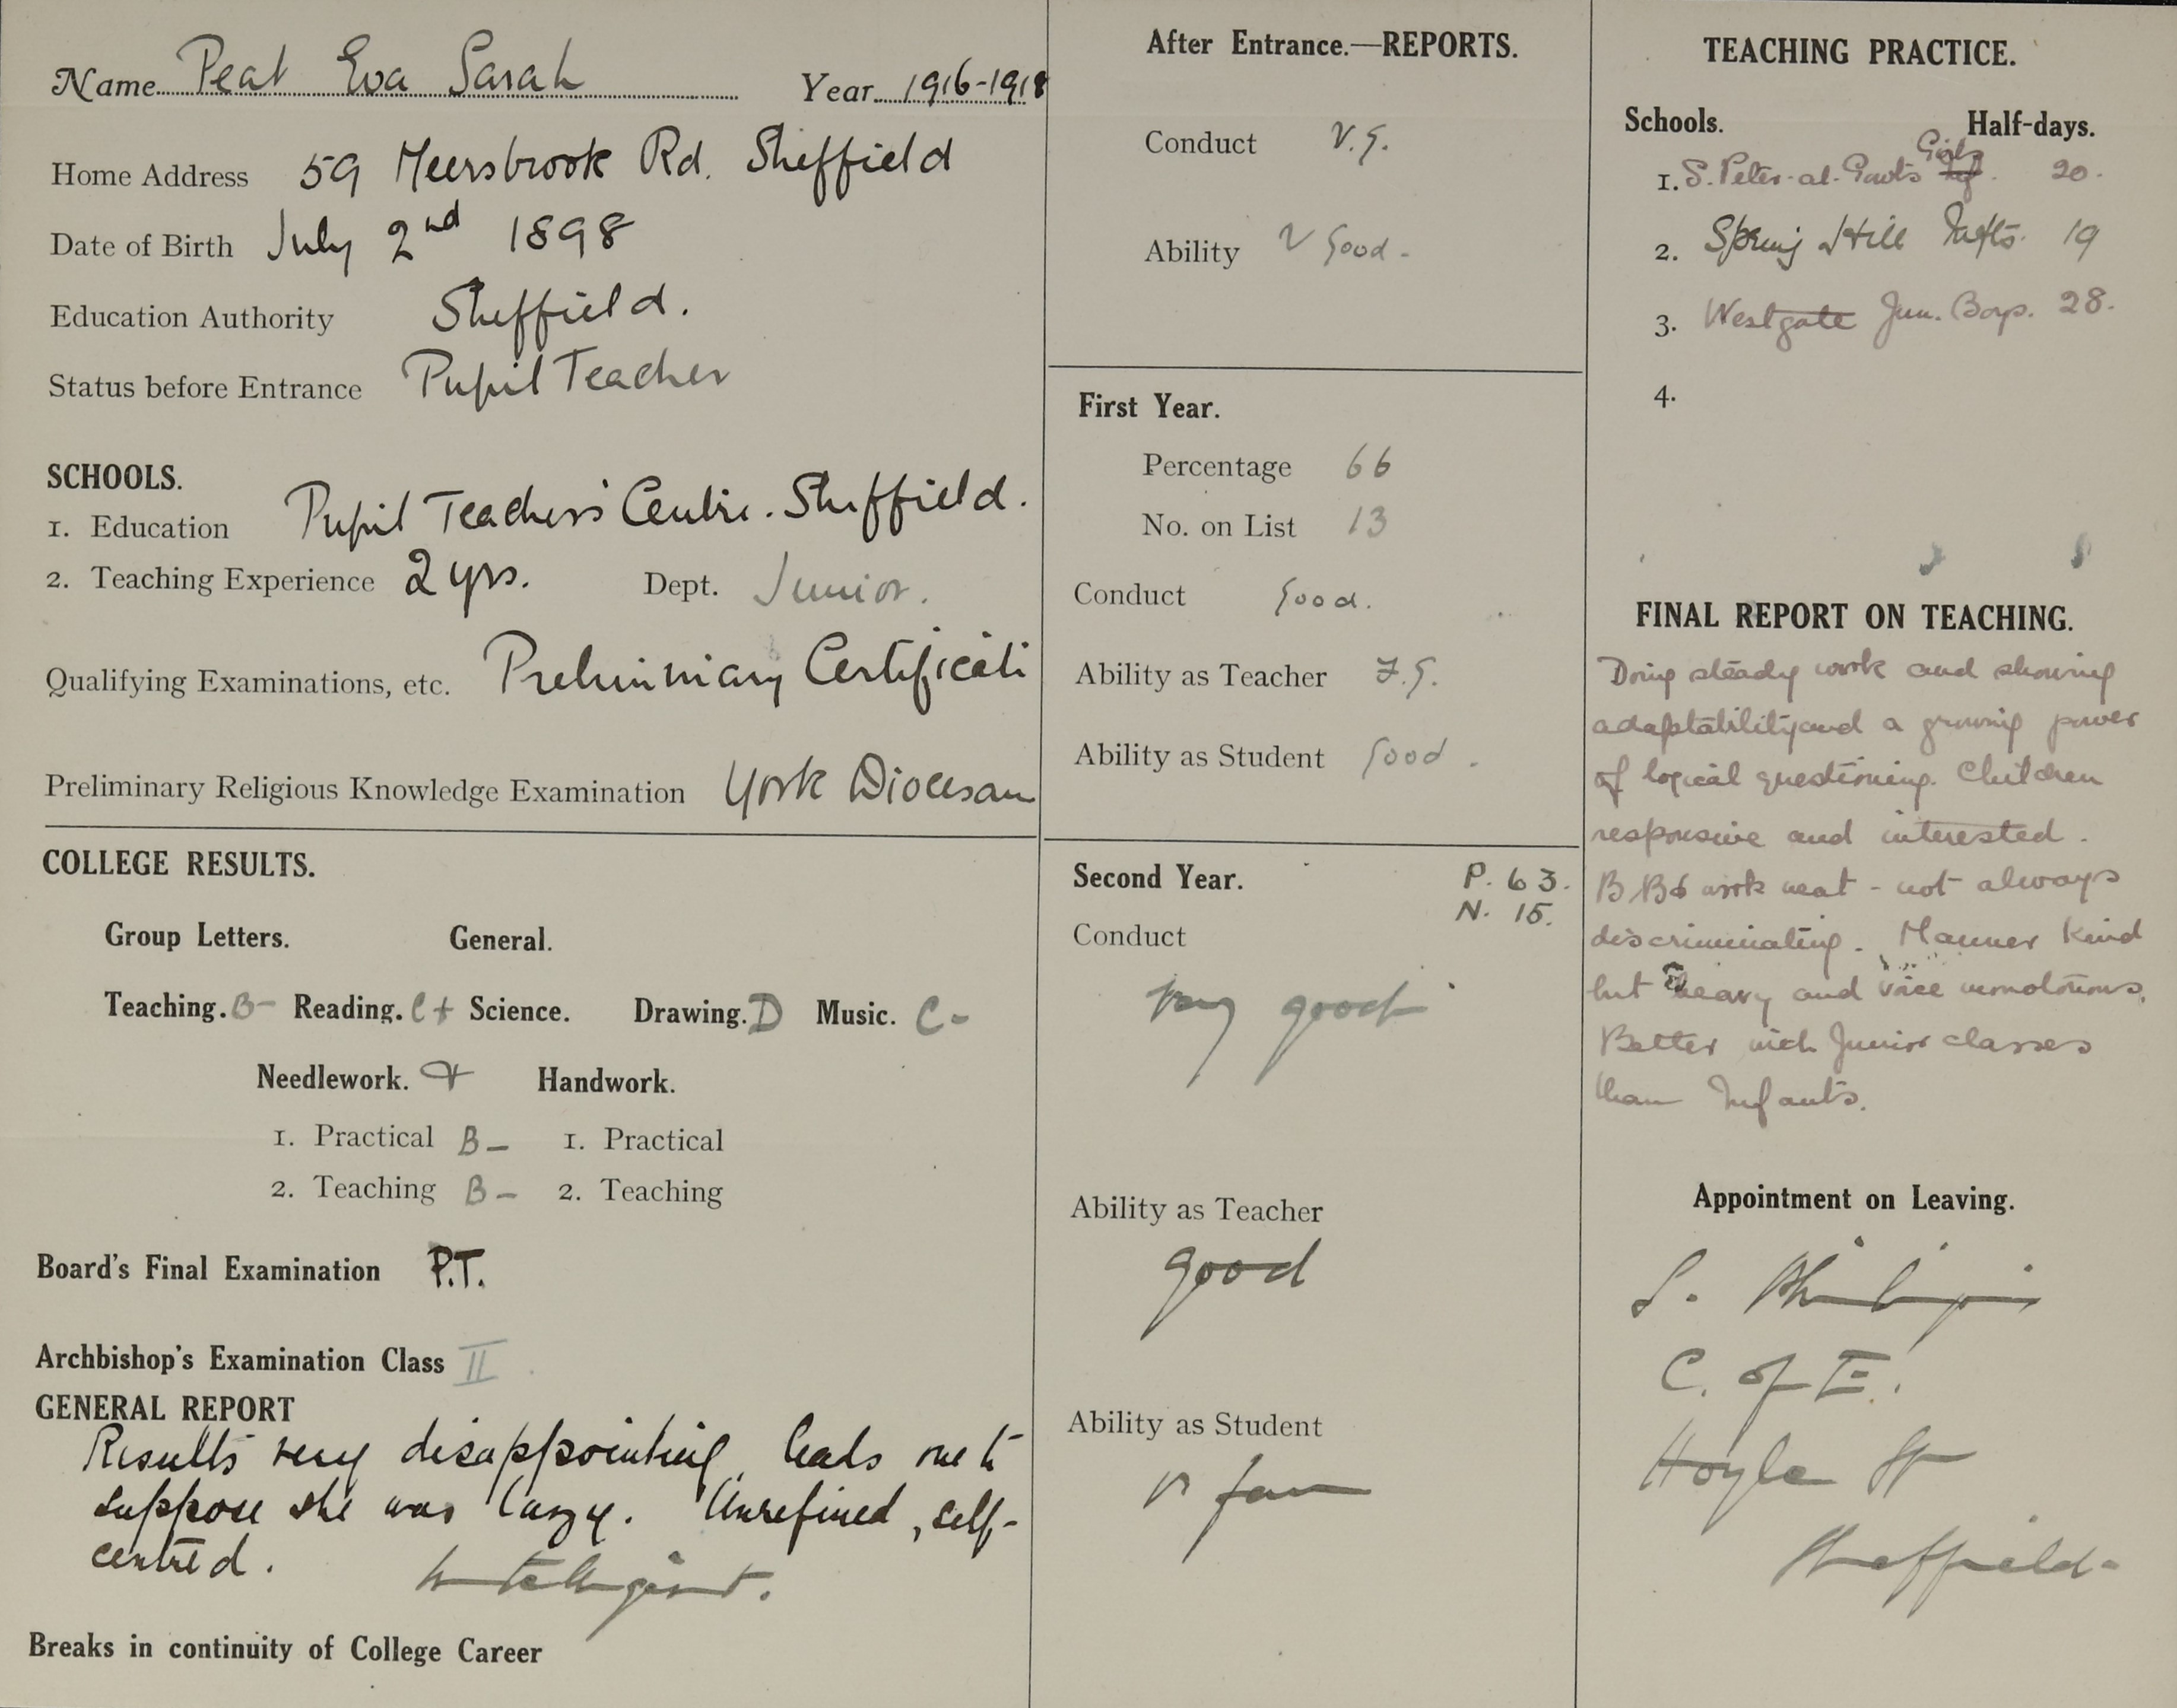 Name Peat Eva Sarah Year 1916-1918
Home Address 59 Meersbrook Rd. Sheffield
Date of Birth July 2nd 1898
Education Authority Sheffield.
Status before Entrance Pupil Teacher
SCHOOLS.
1. Education Pupil Teachers' Centre. Sheffield.
2. Teaching Experience 2 yrs. Dept. Junior.
Qualifying Examinations, etc. Preliminary Certificate
Preliminary Religious Knowledge Examination York Diocesan
COLLEGE RESULTS.
Group Letters. General.
Teaching. B- Reading. C+ Science. Drawing. D Music. C-
Needlework. + Handwork.
1. Practical B- 1. Practical
2. Teaching B- 2. Teaching
Board's Final Examination P.T.
Archbishop's Examination Class II.
GENERAL REPORT
Results very disappointing, leads one to
suppose she was lazy. Unrefined, self-
centred. Intelligent.
Breaks in continuity of College Career
After Entrance.—REPORTS.
Conduct V.G.
Ability V Good.
First Year.
Percentage 66
No. on List 13
Conduct Good.
Ability as Teacher F.G.
Ability as Student Good.
Second Year. P. 63.
N. 15.
Conduct
Very good
Ability as Teacher
good
Ability as Student
v fair
TEACHING PRACTICE.
Schools. Half-days.
Girls
1. S. Peter-at-Gowts Inf. 20.
2. Spring Hill Infts. 19
3. Westgate Jun. Boys. 28.
4.
FINAL REPORT ON TEACHING.
Doing steady work and showing
adaptability and a growing power
of logical questioning. Children
responsive and interested.
B.Bd work neat - not always
discriminating. Manner kind
but heavy and voice monotonous.
Better with Junior classes
than Infants.
Appointment on Leaving.
S. Philip's
C. of E.
Hoyle St
Sheffield.